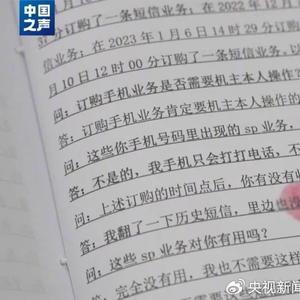 中国之声
月10
分订购了一条短信业务;在2022年12月
信业务;在2023年1月6日14时29分订
月10日12时00分订购了一条短信业务,以
问:订购手机业务是否需要机主本人操作
答:订购手机业务肯定要机主本人操作的
问:这些你手机号码里出现的sp业务,
答:不是的,我手机只会打打电话,不
问:上述订购的时间点后,你有没有收
答:我翻了一下历史短信,里边也没
问:这些sp业务对你有用吗?
答:完全没有用,我也不需要这样
@央视新闻